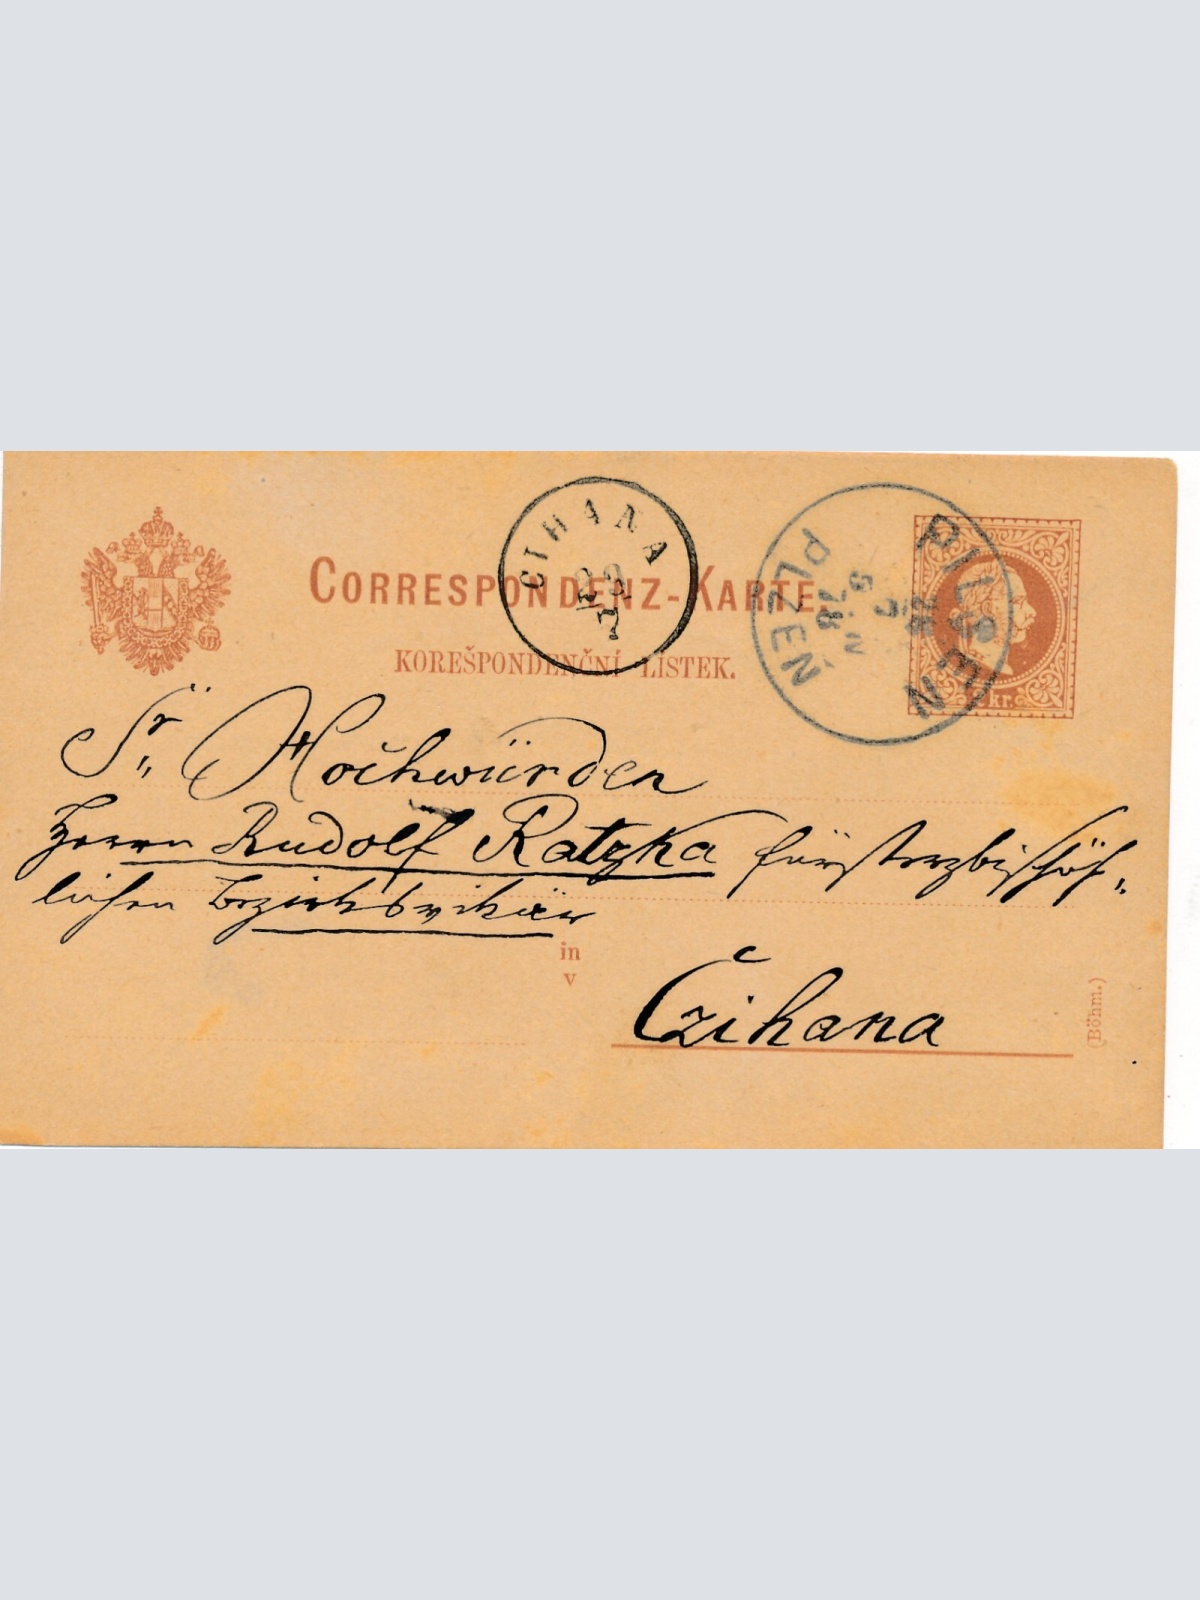 CORRESPONDENZ-KARTE.
KOREŠPONDENČNÍ LÍSTEK.
CIHANA
PILSEN
PLZEN
78
2 kr.
Sr. Hochwürden
Herrn Rudolf Ratzka fürsterzbischöf-
lichen Bezirksvikär
in
v
Čzihana
(Böhm.)